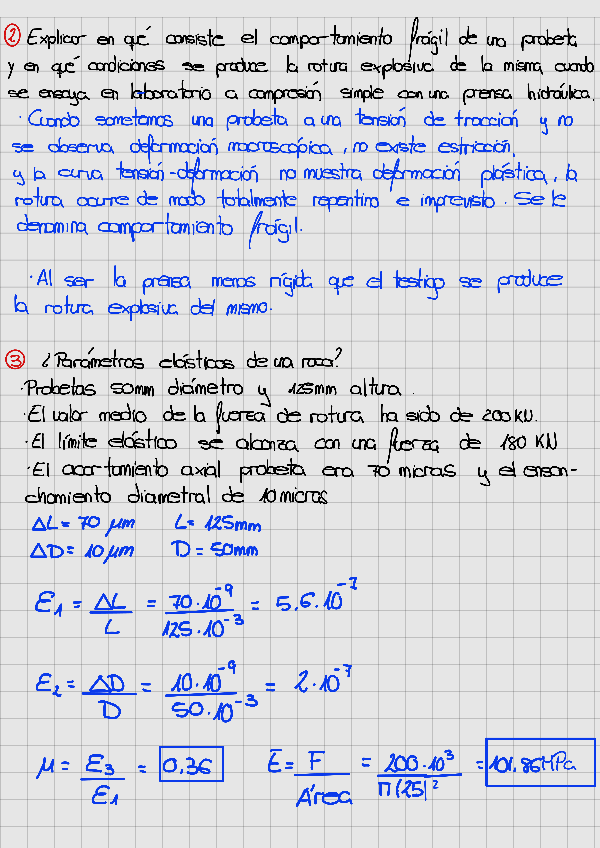 ② Explicar en qué consiste el comportamiento frágil de una probeta
y en qué condiciones se produce la rotura explosiva de la misma, cuando
se ensaya en laboratorio a compresión simple con una prensa hidráulica.
· Cuando sometemos una probeta a una tensión de tracción y no
se observa deformación macroscópica, no existe estricción,
y la curva tensión-deformación no muestra deformación plástica, la
rotura ocurre de modo totalmente repentino e imprevisto. Se le
denomina comportamiento frágil.
· Al ser la prensa menos rígida que el testigo se produce
la rotura explosiva del mismo.
③ ¿Parámetros elásticos de una roca?
· Probetas 50mm diámetro y 125mm altura.
· El valor medio de la fuerza de rotura ha sido de 200 KN.
· El límite elástico se alcanza con una fuerza de 180 KN
· El acortamiento axial probeta era 70 micras y el ensan-
chamiento diametral de 10 micras
ΔL = 70 μm L = 125mm
ΔD = 10 μm D = 50mm
E₁ = ΔL/L = 70·10⁻⁹/125·10⁻³ = 5,6·10⁻⁷
E₂ = ΔD/D = 10·10⁻⁹/50·10⁻³ = 2·10⁻⁷
μ = E₃/E₁ = 0,36 E = F/Área = 200·10³/π(25)² = 101,86MPa